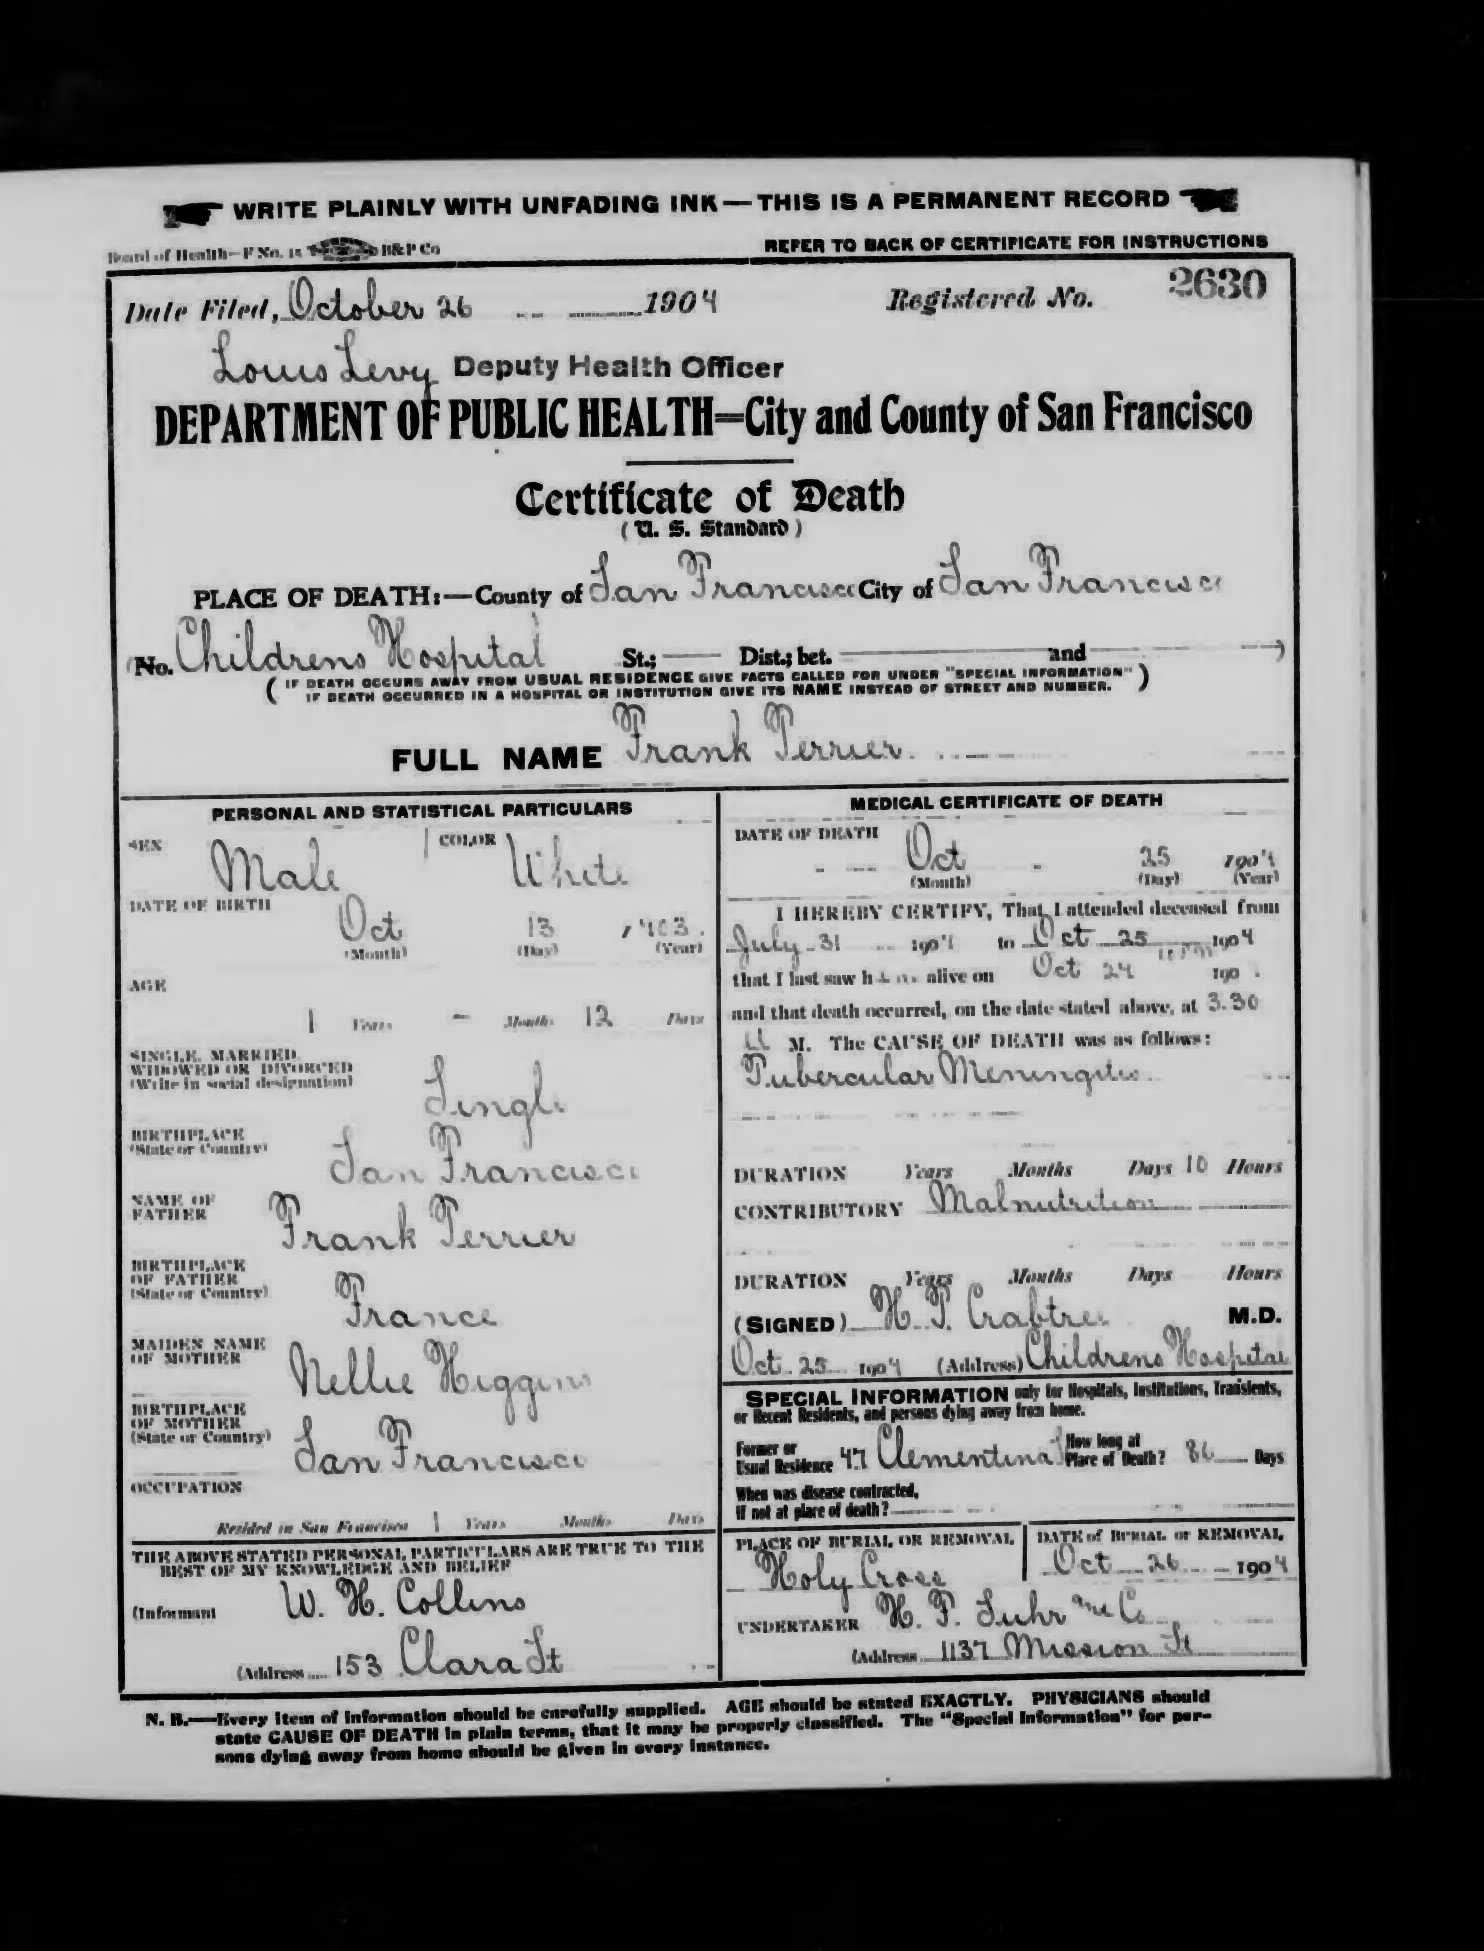 WRITE PLAINLY WITH UNFADING INK — THIS IS A PERMANENT RECORD
Board of Health—F No. 15 B&P Co REFER TO BACK OF CERTIFICATE FOR INSTRUCTIONS
Date Filed, October 26 1904 Registered No. 2630
Louis Levy Deputy Health Officer
DEPARTMENT OF PUBLIC HEALTH=City and County of San Francisco
Certificate of Death
(U. S. Standard)
PLACE OF DEATH:—County of San Francisco City of San Francisco
(No. Childrens Hospital St.; — Dist.; bet. — and —)
(IF DEATH OCCURS AWAY FROM USUAL RESIDENCE GIVE FACTS CALLED FOR UNDER "SPECIAL INFORMATION"
IF DEATH OCCURRED IN A HOSPITAL OR INSTITUTION GIVE ITS NAME INSTEAD OF STREET AND NUMBER.)
FULL NAME Frank Perrier
PERSONAL AND STATISTICAL PARTICULARS
SEX Male COLOR White
DATE OF BIRTH Oct 13, 1903.
(Month) (Day) (Year)
AGE
1 Years – Months 12 Days
SINGLE, MARRIED,
WIDOWED OR DIVORCED
(Write in social designation)
Single
BIRTHPLACE
(State or Country)
San Francisco
NAME OF
FATHER
Frank Perrier
BIRTHPLACE
OF FATHER
(State or Country)
France
MAIDEN NAME
OF MOTHER
Nellie Higgins
BIRTHPLACE
OF MOTHER
(State or Country)
San Francisco
OCCUPATION
Resided in San Francisco 1 Years Months Days
THE ABOVE STATED PERSONAL PARTICULARS ARE TRUE TO THE
BEST OF MY KNOWLEDGE AND BELIEF
(Informant W. H. Collins
(Address 153 Clara St
MEDICAL CERTIFICATE OF DEATH
DATE OF DEATH
Oct 25 1904
(Month) (Day) (Year)
I HEREBY CERTIFY, That I attended deceased from
July 31 1904 to Oct 25 1904
that I last saw him alive on Oct 24 190
and that death occurred, on the date stated above, at 3.30
M. The CAUSE OF DEATH was as follows:
Tubercular Meningitis
DURATION Years Months Days 10 Hours
CONTRIBUTORY Malnutrition
DURATION Years Months Days Hours
(SIGNED) H. P. Crabtree M.D.
Oct 25 1904 (Address) Childrens Hospital
SPECIAL INFORMATION only for Hospitals, Institutions, Transients,
or Recent Residents, and persons dying away from home.
Former or
Usual Residence 47 Clementina
How long at
Place of Death? 86 Days
When was disease contracted,
If not at place of death?
PLACE OF BURIAL OR REMOVAL
Holy Cross
DATE of BURIAL or REMOVAL
Oct 26 1904
UNDERTAKER H. F. Suhr and Co
(Address 1137 Mission St
N. B.—Every item of information should be carefully supplied. AGE should be stated EXACTLY. PHYSICIANS should
state CAUSE OF DEATH in plain terms, that it may be properly classified. The "Special Information" for per-
sons dying away from home should be given in every instance.